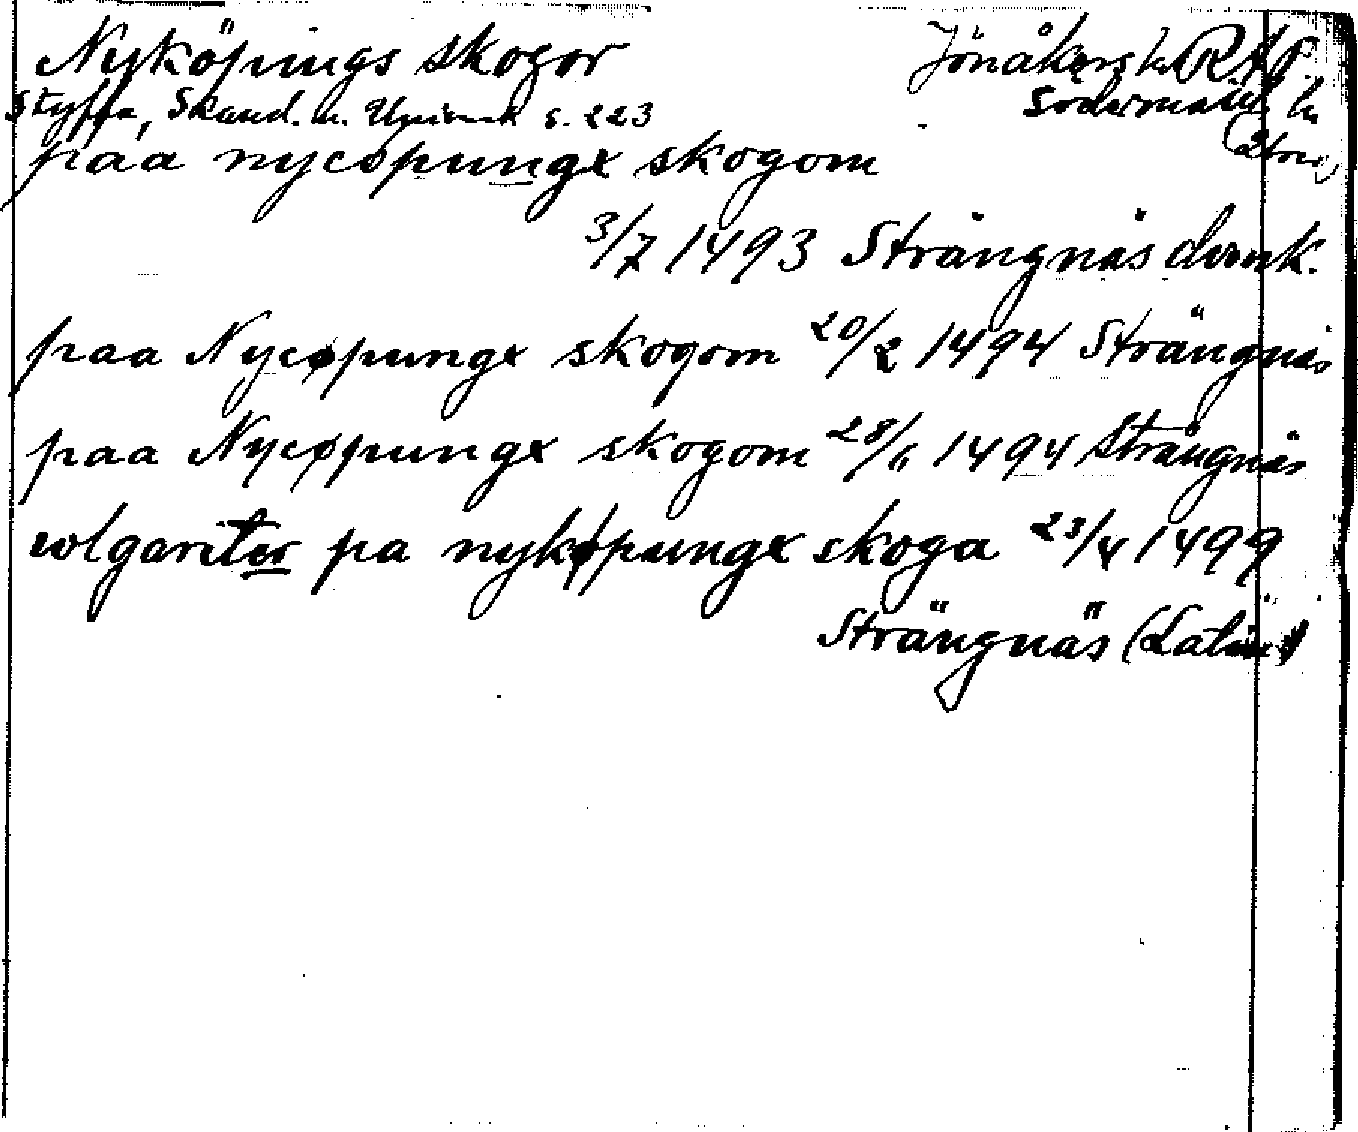 Nyköpings skogor Jönåkers h. RAP.
Styffe, Skand. u. Unionst s. 223 Södermanl. h.
paa nycopungx skogom
3/7 1493 Strängnäs domk.
paa Nycøpungx skogom 20/2 1494 Strängnäs
paa Nycøpungx skogom 28/6 1494 Strängnäs
wlgariter pa nykøpungx skoga 23/4 1499
Strängnäs (Latin)